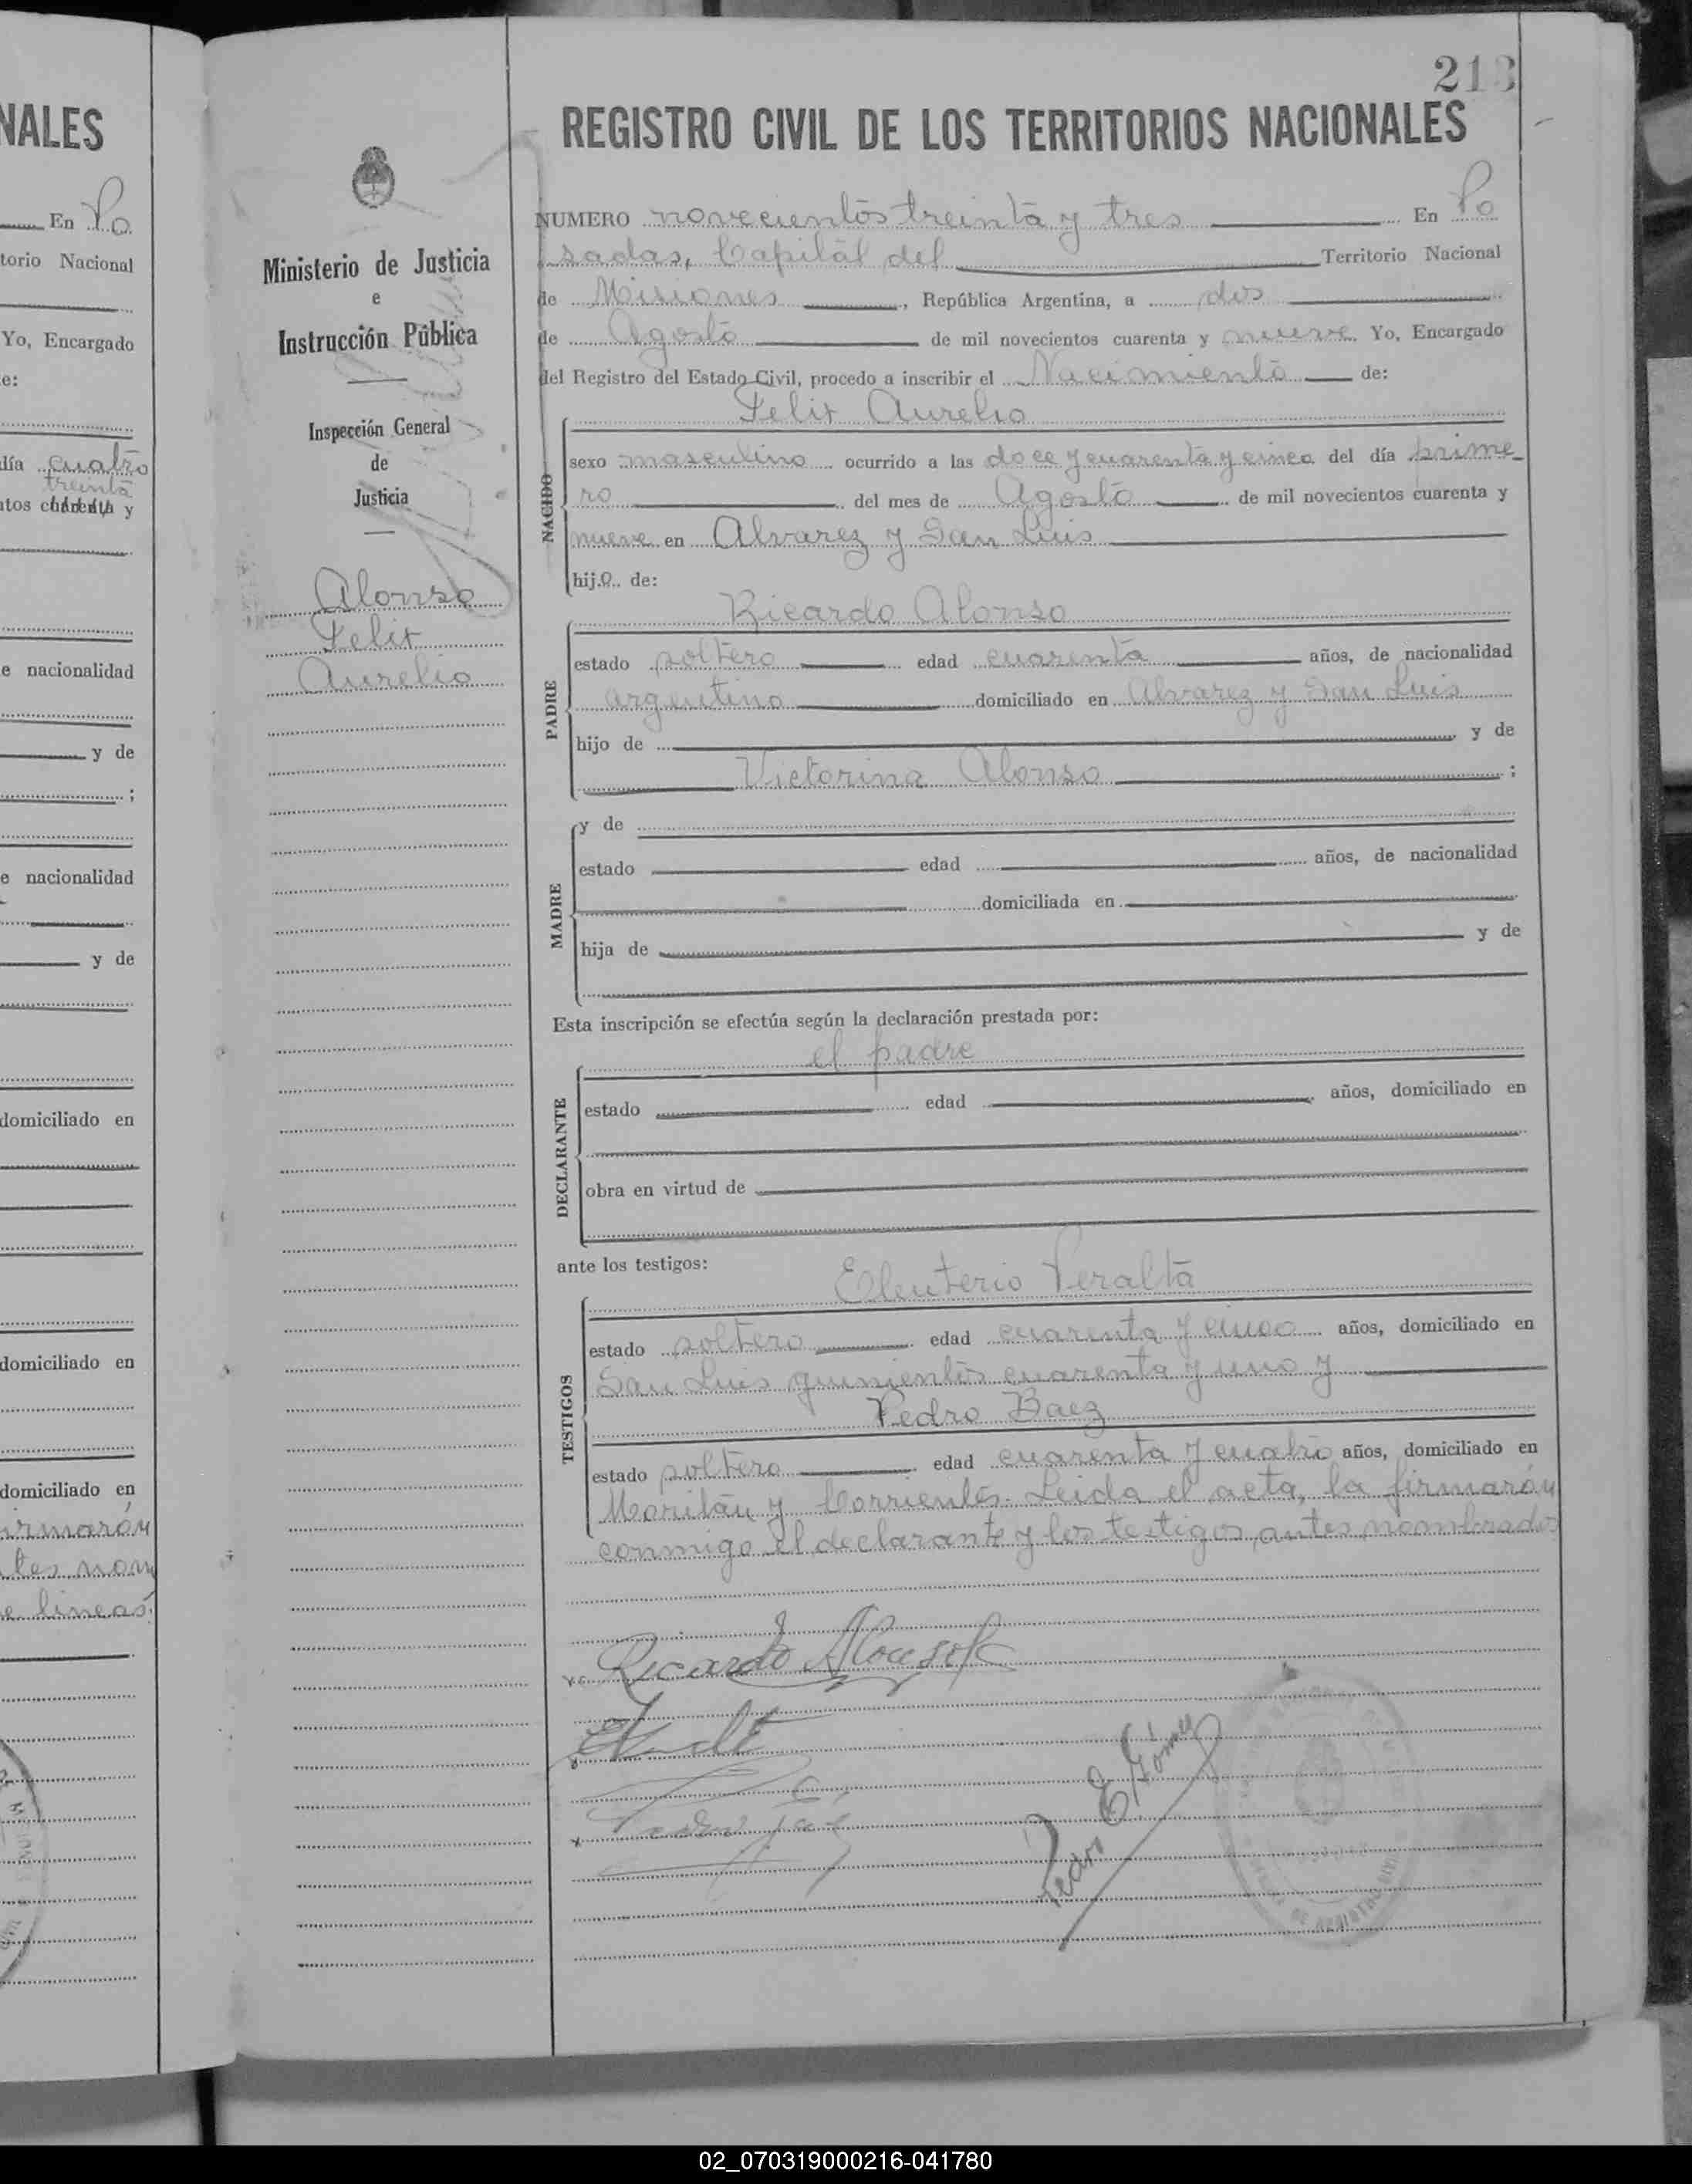 NALES
En Po
torio Nacional
Yo, Encargado
e:
día cuatro
treinta
tos cuarenta y
e nacionalidad
y de
;
e nacionalidad
y de
domiciliado en
domiciliado en
domiciliado en
irmarón
tes nom
e lineas.
Ministerio de Justicia
e
Instrucción Pública
Inspección General
de
Justicia
Alonso
Felix
Aurelio
213
REGISTRO CIVIL DE LOS TERRITORIOS NACIONALES
NUMERO novecientos treinta y tres En Po
sadas, Capital del Territorio Nacional
de Misiones, República Argentina, a dos
de Agosto de mil novecientos cuarenta y nueve Yo, Encargado
del Registro del Estado Civil, procedo a inscribir el Nacimiento de:
Felix Aurelio
NACIDO
sexo masculino ocurrido a las doce y cuarenta y cinco del día prime
ro del mes de Agosto de mil novecientos cuarenta y
nueve en Alvarez y San Luis
hij.o. de:
Ricardo Alonso
PADRE
estado soltero edad cuarenta años, de nacionalidad
argentino domiciliado en Alvarez y San Luis
hijo de y de
Victorina Alonso ;
MADRE
y de
estado edad años, de nacionalidad
domiciliada en
hija de y de
Esta inscripción se efectúa según la declaración prestada por:
el padre
DECLARANTE
estado edad años, domiciliado en
obra en virtud de
ante los testigos:
Eleuterio Peralta
TESTIGOS
estado soltero edad cuarenta y cinco años, domiciliado en
San Luis quinientos cuarenta y uno y
Pedro Baez
estado soltero edad cuarenta y cuatro años, domiciliado en
Moritán y Corrientes. Leida el acta, la firmarón
conmigo el declarante y los testigos antes nombrados
Ricardo Alonso
Pedro E. Gómez
02_070319000216-041780